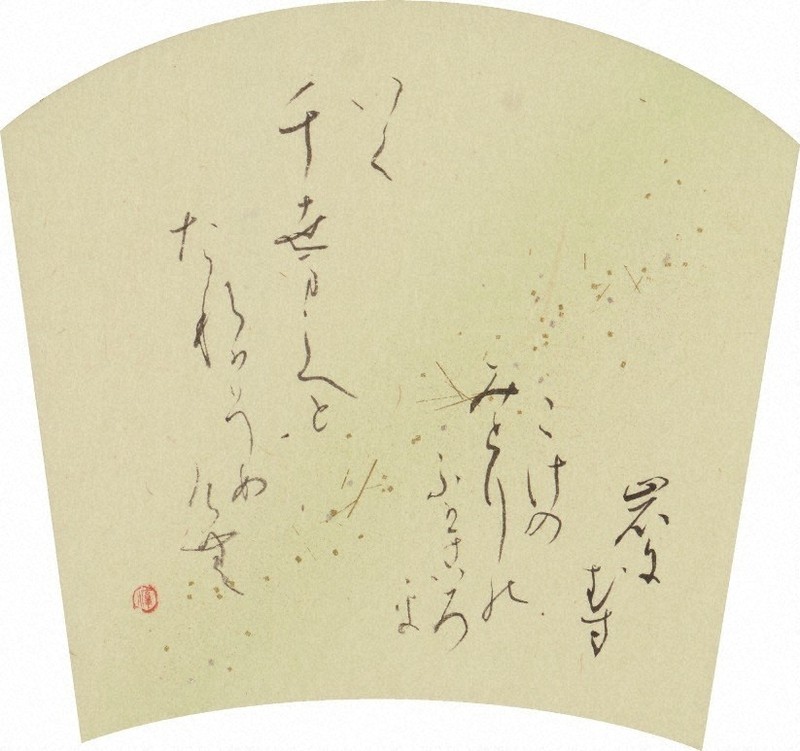 巌に
むす
こけの
みとりの
ふかきいろ
を
いく
千世まてと
たれ
かそめ
けむ